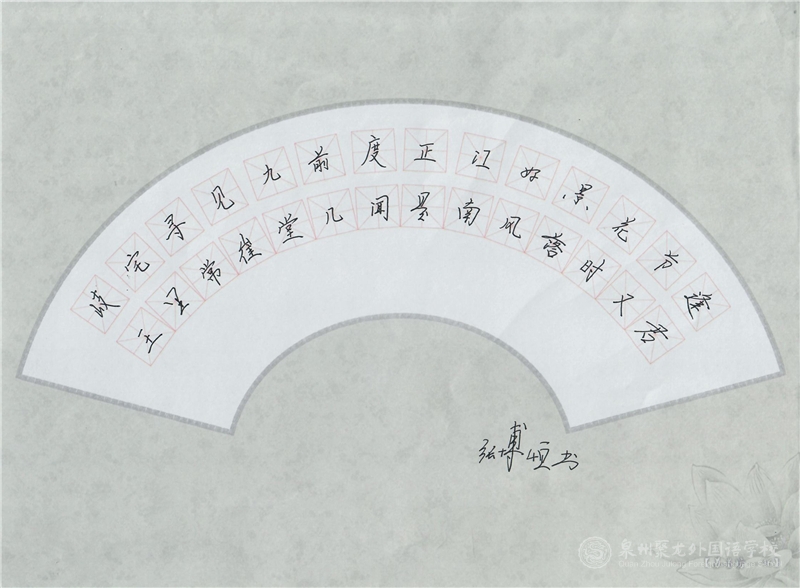 岐王
宅里
寻常
见崔
九堂
前几
度闻
正是
江南
好风
景落
花时
节又
逢君
张博恒书
泉州聚龙外国语学校